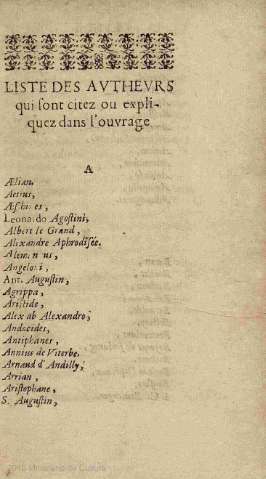 LISTE DES AVTHEVRS
qui ſont citez ou expli-
quez dans l'ouvrage
A
Ælian,
Aetius,
Æſchines,
Leonardo Agoſtini,
Albert le Grand,
Alexandre Aphrodiſée,
Angeloni,
Ant. Auguſtin,
Agrippa,
Ariſtide,
Alex ab Alexandro,
Andocides,
Antiphanes,
Annius de Viterbe,
Arnaud d'Andilly,
Arrian,
Ariſtophane,
S. Auguſtin,
2010 Ministerio de Cultura